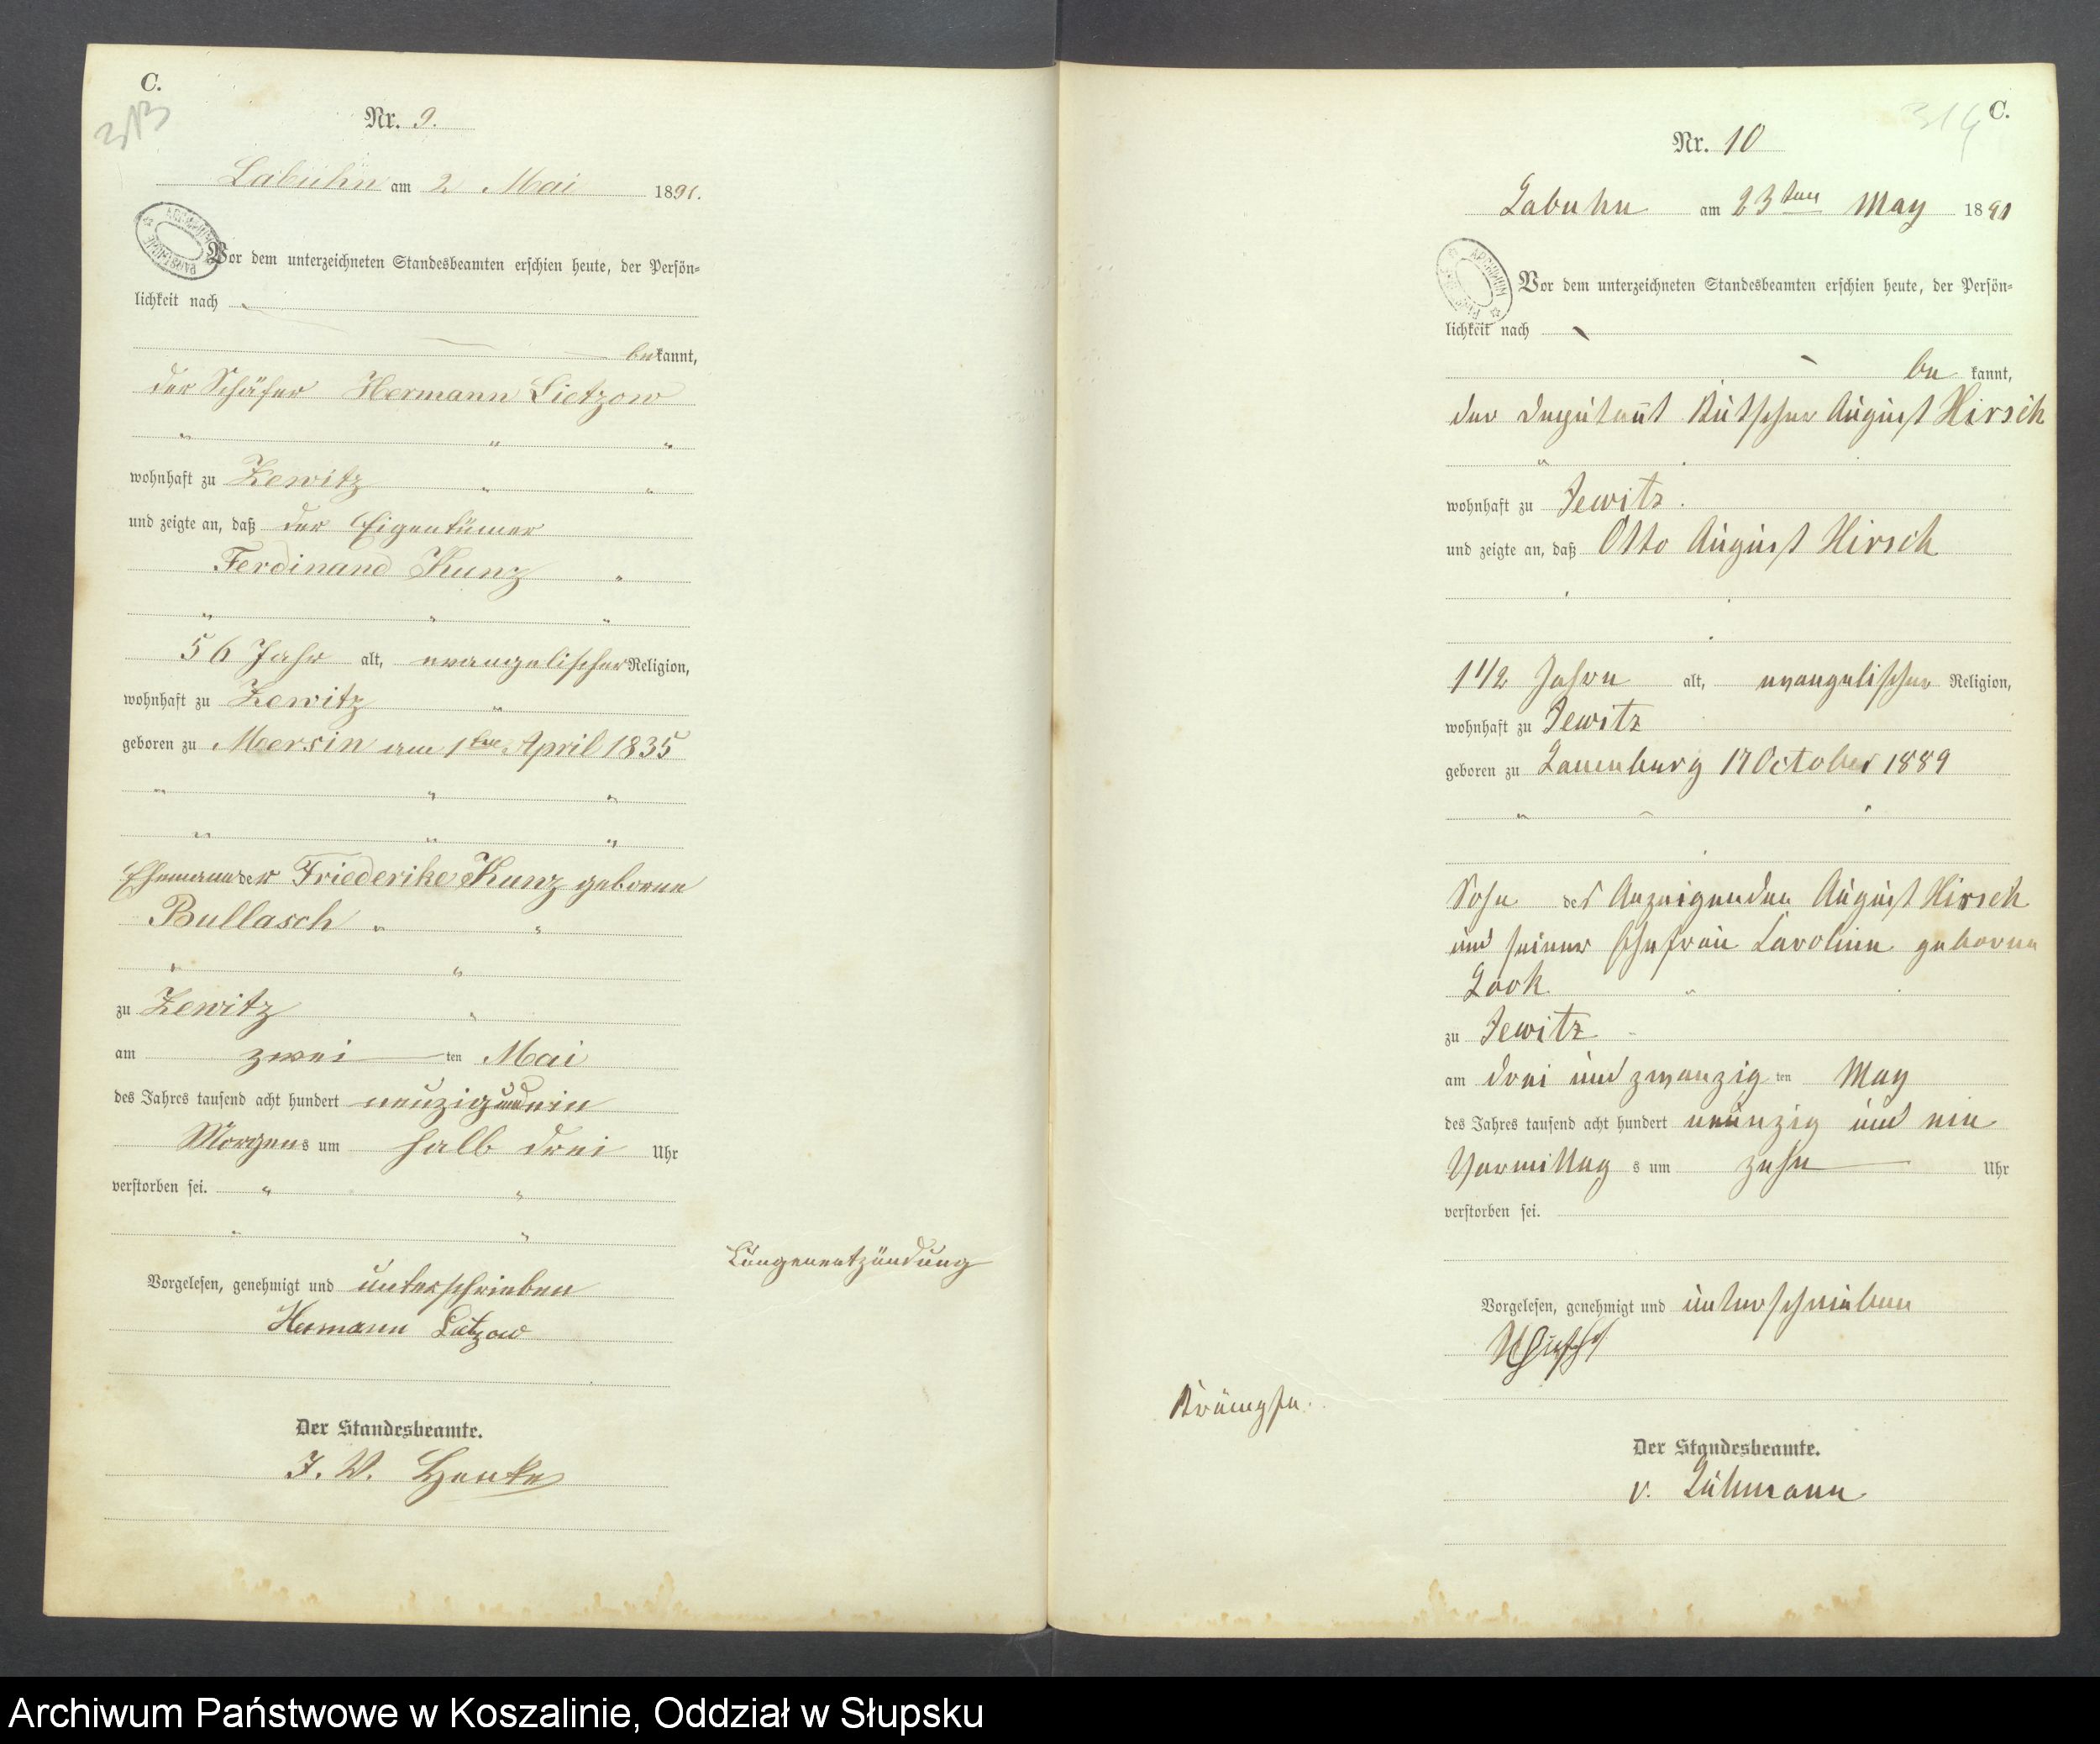 C.
313
Nr. 9.
Labuhn am 2 Mai 1891.
Vor dem unterzeichneten Standesbeamten erschien heute, der Persön=
lichkeit nach
bekannt,
der Schäfer Hermann Lietzow
wohnhaft zu Zewitz
und zeigte an, daß der Eigentümer
Ferdinand Kunz
56 Jahr alt, evangelischer Religion,
wohnhaft zu Zewitz
geboren zu Meersin am 1ten April 1835
Ehemann der Friederike Kunz geborene
Bullasch
zu Zewitz
am zwei ten Mai
des Jahres tausend acht hundert neunzig und ein
Morgens um halb drei Uhr
verstorben sei.
Lungenentzündung
Vorgelesen, genehmigt und unterschrieben
Hermann Lietzow
Der Standesbeamte.
I. V. Henke
C.
314
Nr. 10
Labuhn am 23ten May 1891
Vor dem unterzeichneten Standesbeamten erschien heute, der Persön=
lichkeit nach
be kannt,
der Deputant Kutscher August Hirsch
wohnhaft zu Zewitz.
und zeigte an, daß Otto August Hirsch
1 1/2 Jahre alt, evangelischer Religion,
wohnhaft zu Zewitz
geboren zu Lauenburg 17 October 1889
Sohn des Anzeigenden August Hirsch
und seiner Ehefrau Caroline geborne
Look.
zu Zewitz
am drei und zwanzig ten May
des Jahres tausend acht hundert neunzig und ein
Vormittag s um zehn Uhr
verstorben sei.
Vorgelesen, genehmigt und unterschrieben
Krämpfe.
Der Standesbeamte.
v.
Archiwum Państwowe w Koszalinie, Oddział w Słupsku